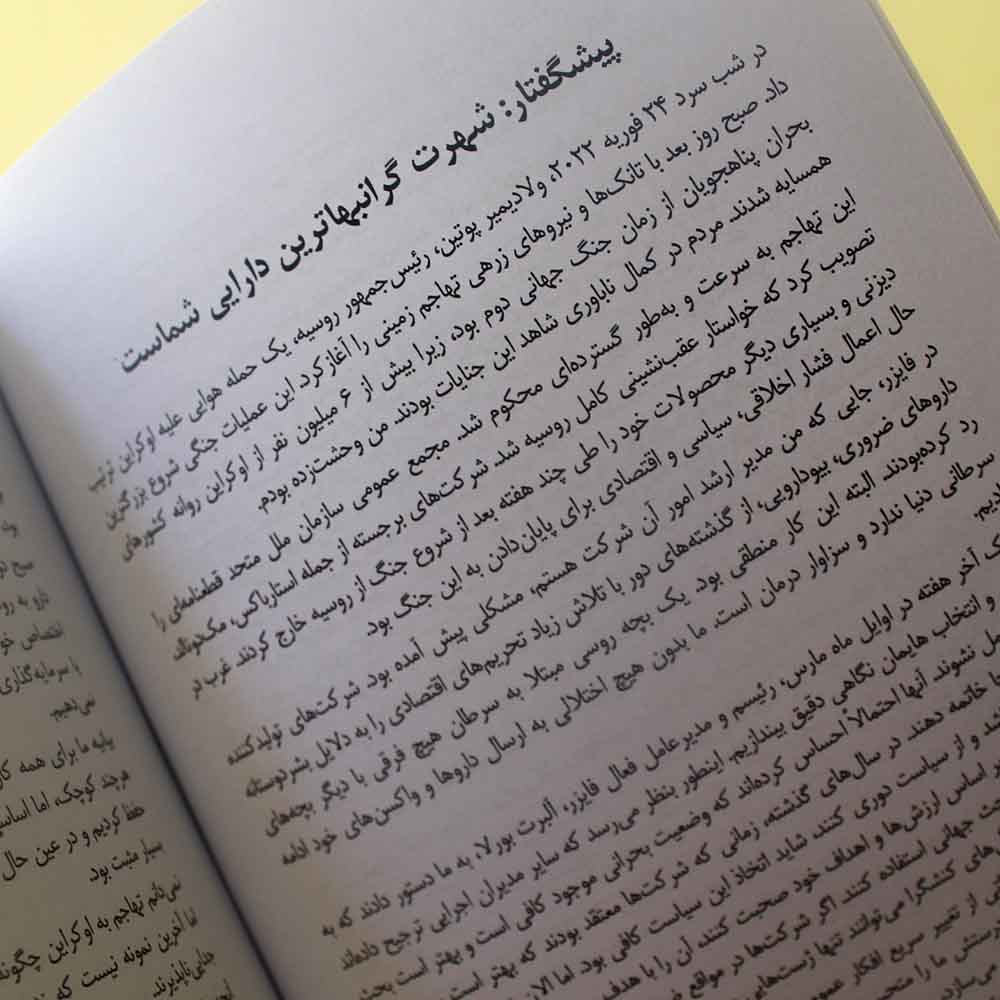 پیشگفتار: شهرت گرانبهاترین دارایی شماست
در شب سرد ۲۴ فوریه ۲۰۲۲، ولادیمیر پوتین، رئیس‌جمهور روسیه، یک حمله هوایی علیه اوکراین ترتیب
داد. صبح روز بعد با تانک‌ها و نیروهای زرهی تهاجم زمینی را آغاز کرد. این عملیات جنگی شروع بزرگترین
بحران پناهجویان از زمان جنگ جهانی دوم بود، زیرا بیش از ۶ میلیون نفر از اوکراین روانه کشورهای
همسایه شدند. مردم در کمال ناباوری شاهد این جنایات بودند. من وحشت‌زده بودم.
این تهاجم به سرعت و به‌طور گسترده‌ای محکوم شد. مجمع عمومی سازمان ملل متحد قطعنامه‌ای را
تصویب کرد که خواستار عقب‌نشینی کامل روسیه شد. شرکت‌های برجسته از جمله استارباکس، مک‌دونالد،
دیزنی و بسیاری دیگر محصولات خود را طی چند هفته بعد از شروع جنگ از روسیه خارج کردند. غرب در
حال اعمال فشار اخلاقی، سیاسی و اقتصادی برای پایان‌دادن به این جنگ بود.
در فایزر، جایی که من مدیر ارشد امور آن شرکت هستم، مشکلی پیش آمده بود. شرکت‌های تولیدکننده
داروهای ضروری، بیودارویی، از گذشته‌های دور با تلاش زیاد تحریم‌های اقتصادی را به دلایل بشردوستانه
رد کرده‌بودند. البته این کار منطقی بود. یک بچه روسی مبتلا به سرطان هیچ فرقی با دیگر بچه‌های
سرطانی دنیا ندارد و سزاوار درمان است. ما بدون هیچ اختلالی به ارسال داروها و واکسن‌های خود ادامه
آخر هفته در اوایل ماه مارس، رئیسم و مدیرعامل فعال فایزر، آلبرت بورلا، به ما دستور دادند که به
و انتخاب هایمان نگاهی دقیق بیندازیم. اینطور بنظر می‌رسد که سایر مدیران اجرایی ترجیح داده‌اند
نشوند. آنها احتمالاً احساس کرده‌اند که وضعیت بحرانی موجود کافی است و بهتر است بحث
خاتمه دهند. در سال‌های گذشته، زمانی که شرکت‌ها معتقد بودند که بهتر است
و از سیاست دوری کنند، شاید اتخاذ این سیاست کافی بود. اما
اساس ارزش‌ها و اهداف خود صحبت کنند، آن را با هدف
جهانی استفاده کنند. اگر شرکت‌ها در مواقع
کنشگرا می‌توانند تنها ژست‌هایی
از تغییر سریع افکار
ما را
با سرمایه‌گذاری
نمی‌دهیم.
پایه ما برای همه
هرچند کوچک، اما
حفظ کردیم و در عین حال
بسیار مثبت بود.
نمی‌دانم تهاجم به اوکراین چگونه
اما آخرین نمونه نیست که
جدایی‌ناپذیرند.